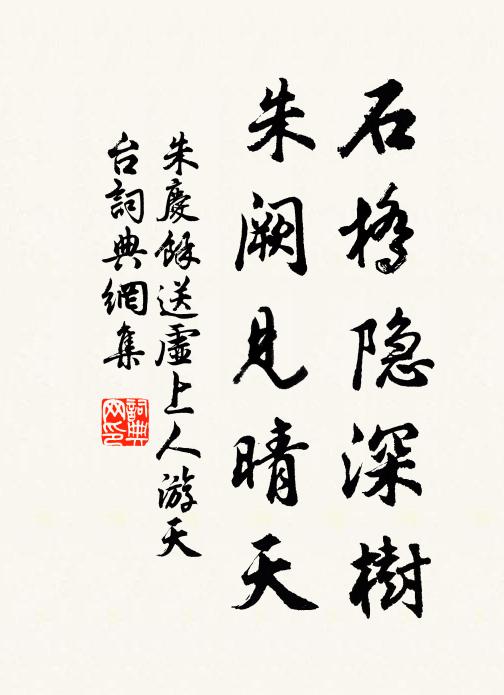 石橋隐深樹
朱阙見晴天
朱慶餘送虛上人游天
台詞典網集
詞典
网印